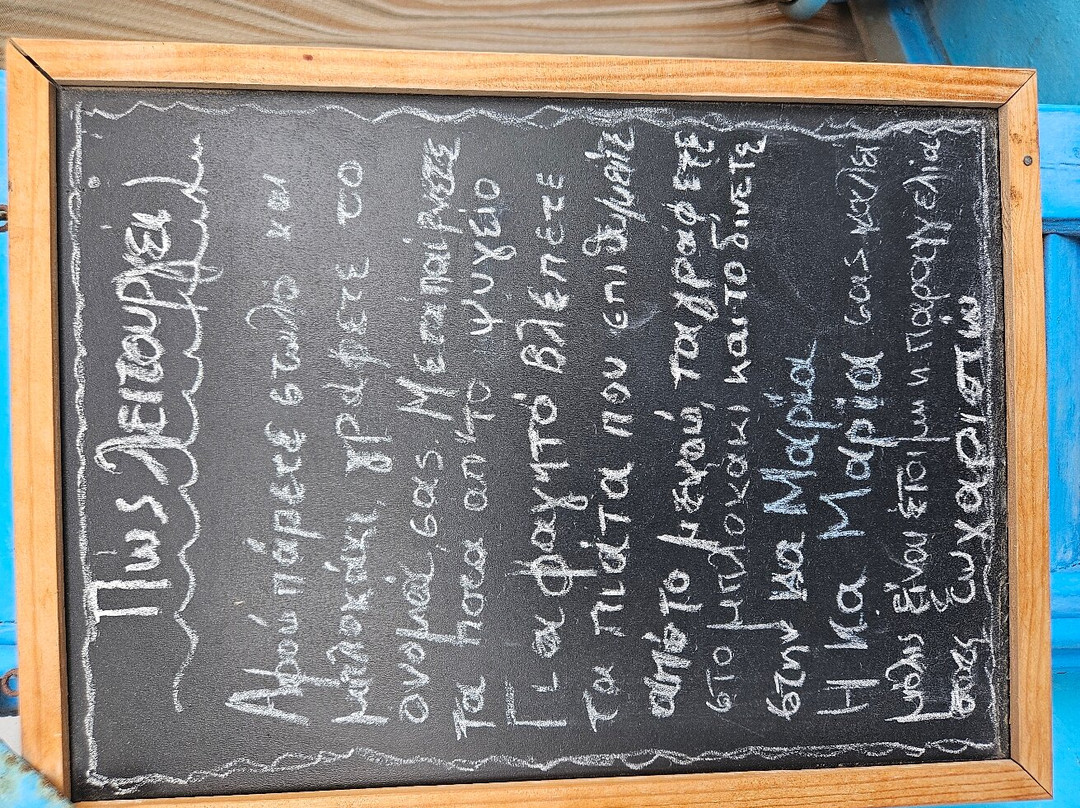 Πώς λειτουργεί
Αφού πάρετε στυλό και
μπλοκάκι, γράφετε το
όνομά σας. Μετά παίρνετε
τα ποτα απ'το ψυγείο
Για φαγητό βλέπετε
τα πιάτα που επιθυμείτε
από το μενού, τα γράφετε
στο μπλοκάκι και το δίνετε
στην κα Μαρία
Η κα Μαρία σας καλεί
μόλις είναι έτοιμη η παραγγελία
σας Ευχαριστώ